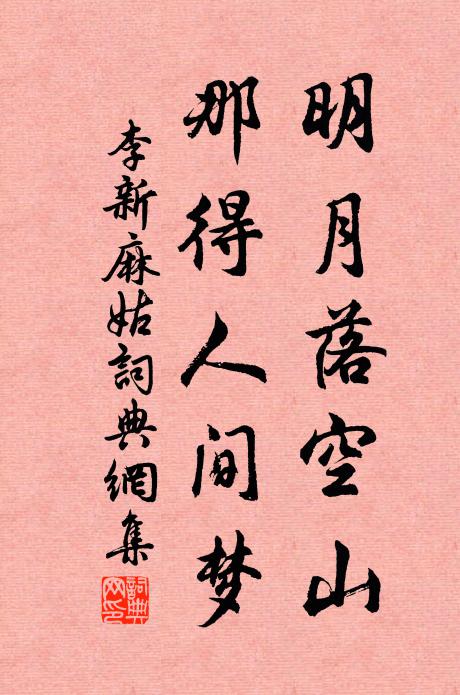 明月落空山
那得人间梦
李新麻姑詞典網集
詞典网印